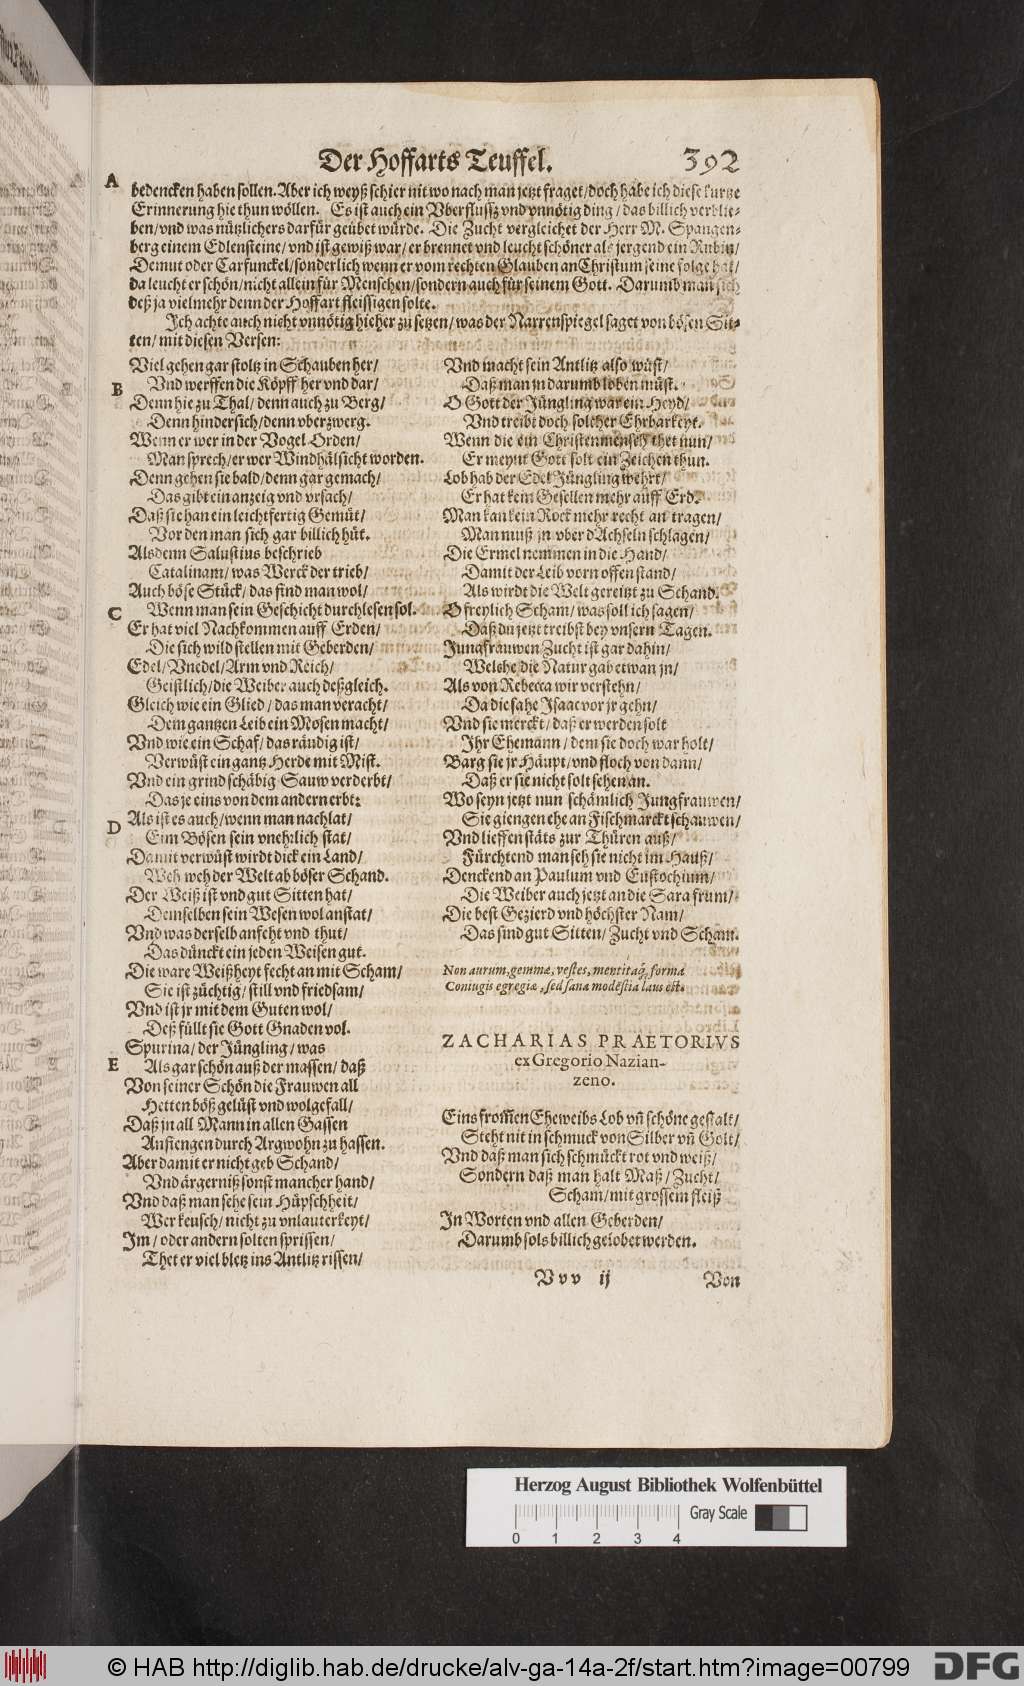 Der Hoffarts Teuffel. 392
A
bedencken haben sollen. Aber ich weyß schier nit wo nach man jetzt fraget/ doch habe ich diese kurtze
Erinnerung hie thun wöllen. Es ist auch ein Vberflussz vnd vnnötig ding/ das billich verblie-
ben/ vnd was nützlichers darfür geübet würde. Die Zucht vergleichet der Herr M. Spangen-
berg einem Edlensteine/ vnd ist gewiß war/ er brennet vnd leucht schöner als jergend ein Rubin/
Demut oder Carfunckel/ sonderlich wenn er vom rechten Glauben an Christum seine folge hat/
da leucht er schön/ nicht allein für Menschen/ sondern auch für seinem Gott. Darumb man sich
deß ja vielmehr denn der Hoffart fleissigen solte.
Ich achte auch nicht vnnötig hieher zu setzen/ was der Narrenspiegel saget von bösen Sit-
ten/ mit diesen Versen:
Viel gehen gar stoltz in Schauben her/
B
Vnd werffen die Köpff her vnd dar/
Denn hie zu Thal/ denn auch zu Berg/
Denn hindersich/ denn vberzwerg.
Wenn er wer in der Vogel Orden/
Man sprech/ er wer Windhälsicht worden.
Denn gehen sie bald/ denn gar gemach/
Das gibt ein anzeig vnd vrsach/
Daß sie han ein leichtfertig Gemüt/
Vor den man sich gar billich hüt.
Alsdenn Salustius beschrieb
Catalinam/ was Werck der trieb/
Auch böse Stück/ das find man wol/
C
Wenn man sein Geschicht durchlesen sol.
Er hat viel Nachkommen auff Erden/
Die sich wild stellen mit Geberden/
Edel/ Vnedel/ Arm vnd Reich/
Geistlich/ die Weiber auch deßgleich.
Gleich wie ein Glied/ das man veracht/
Dem gantzen Leib ein Mosen macht/
Vnd wie ein Schaf/ das räudig ist/
Verwüst ein gantz Herde mit Mist.
Vnd ein grind schäbig Sauw verderbt/
Das je eins von dem andern erbt:
D
Als ist es auch/ wenn man nachlat/
Eim Bösen sein vnehrlich stat/
Damit verwüst wirdt dick ein Land/
Weh weh der Welt ab böser Schand.
Der Weiß ist vnd gut Sitten hat/
Demselben sein Wesen wol anstat/
Vnd was derselb anfeht vnd thut/
Das dünckt ein jeden Weisen gut.
Die ware Weißheyt fecht an mit Scham/
Sie ist züchtig/ still vnd friedsam/
Vnd ist jr mit dem Guten wol/
Deß füllt sie Gott Gnaden vol.
Spurina/ der Jüngling/ was
E
Als gar schön auß der massen/ daß
Von seiner Schön die Frauwen all
Hetten böß gelüst vnd wolgefall/
Daß jn all Mann in allen Gassen
Anfiengen durch Argwohn zu hassen.
Aber damit er nicht geb Schand/
Vnd ärgerniß sonst mancher hand/
Vnd daß man sehe sein Hüpschheit/
Wer keusch/ nicht zu vnlauterkeyt/
Im/ oder andern solten sprissen/
Thet er viel bletz ins Antlitz rissen/
Vnd macht sein Antlitz also wüst/
Daß man jn darumb loben müst.
O Gott der Jüngling war ein Heyd/
Vnd treibt doch solcher Ehrbarkeyt.
Wenn die ein Christenmensch thet nun/
Er meynt Gott solt ein Zeichen thun.
Lob hab der Edel Jüngling wehrt/
Er hat kein Gesellen mehr auff Erd.
Man kan kein Rock mehr recht an tragen/
Man muß jn vber d Achseln schlagen/
Die Ermel nemmen in die Hand/
Damit der Leib vorn offen stand/
Als wirdt die Welt gereitzt zu Schand.
O freylich Scham/ was soll ich sagen/
Daß du jetzt treibst bey vnsern Tagen.
Jungfrauwen Zucht ist gar dahin/
Welche die Natur gab etwan jn/
Als von Rebecca wir verstehn/
Da die sahe Isaac vor jr gehn/
Vnd sie merckt/ daß er werden solt
Ihr Ehemann/ dem sie doch war holt/
Barg sie jr Häupt/ vnd floch von dann/
Daß er sie nicht solt sehen an.
Wo seyn jetzt nun schämlich Jungfrauwen/
Sie giengen ehe an Fischmarckt schauwen/
Vnd lieffen stäts zur Thüren auß/
Fürchtend man seh sie nicht im Hauß/
Denckend an Paulum vnd Eustochium/
Die Weiber auch jetzt an die Sara frum/
Die best Gezierd vnd höchster Nam/
Das sind gut Sitten/ Zucht vnd Scham.
Non aurum, gemmæ, vestes, mentitaq́ forma
Coniugis egregiæ, sed sana modestia laus est.
ZACHARIAS PRAETORIVS
ex Gregorio Nazian-
zeno.
Eins from̃en Eheweibs Lob vñ schöne gestalt/
Steht nit in schmuck von Silber vñ Golt/
Vnd daß man sich schmückt rot vnd weiß/
Sondern daß man halt Maß/ Zucht/
Scham/ mit grossem fleiß
In Worten vnd allen Geberden/
Darumb sols billich gelobet werden.
Vvv ij Von
Herzog August Bibliothek Wolfenbüttel
Gray Scale
0 1 2 3 4
© HAB http://diglib.hab.de/drucke/alv-ga-14a-2f/start.htm?image=00799 DFG